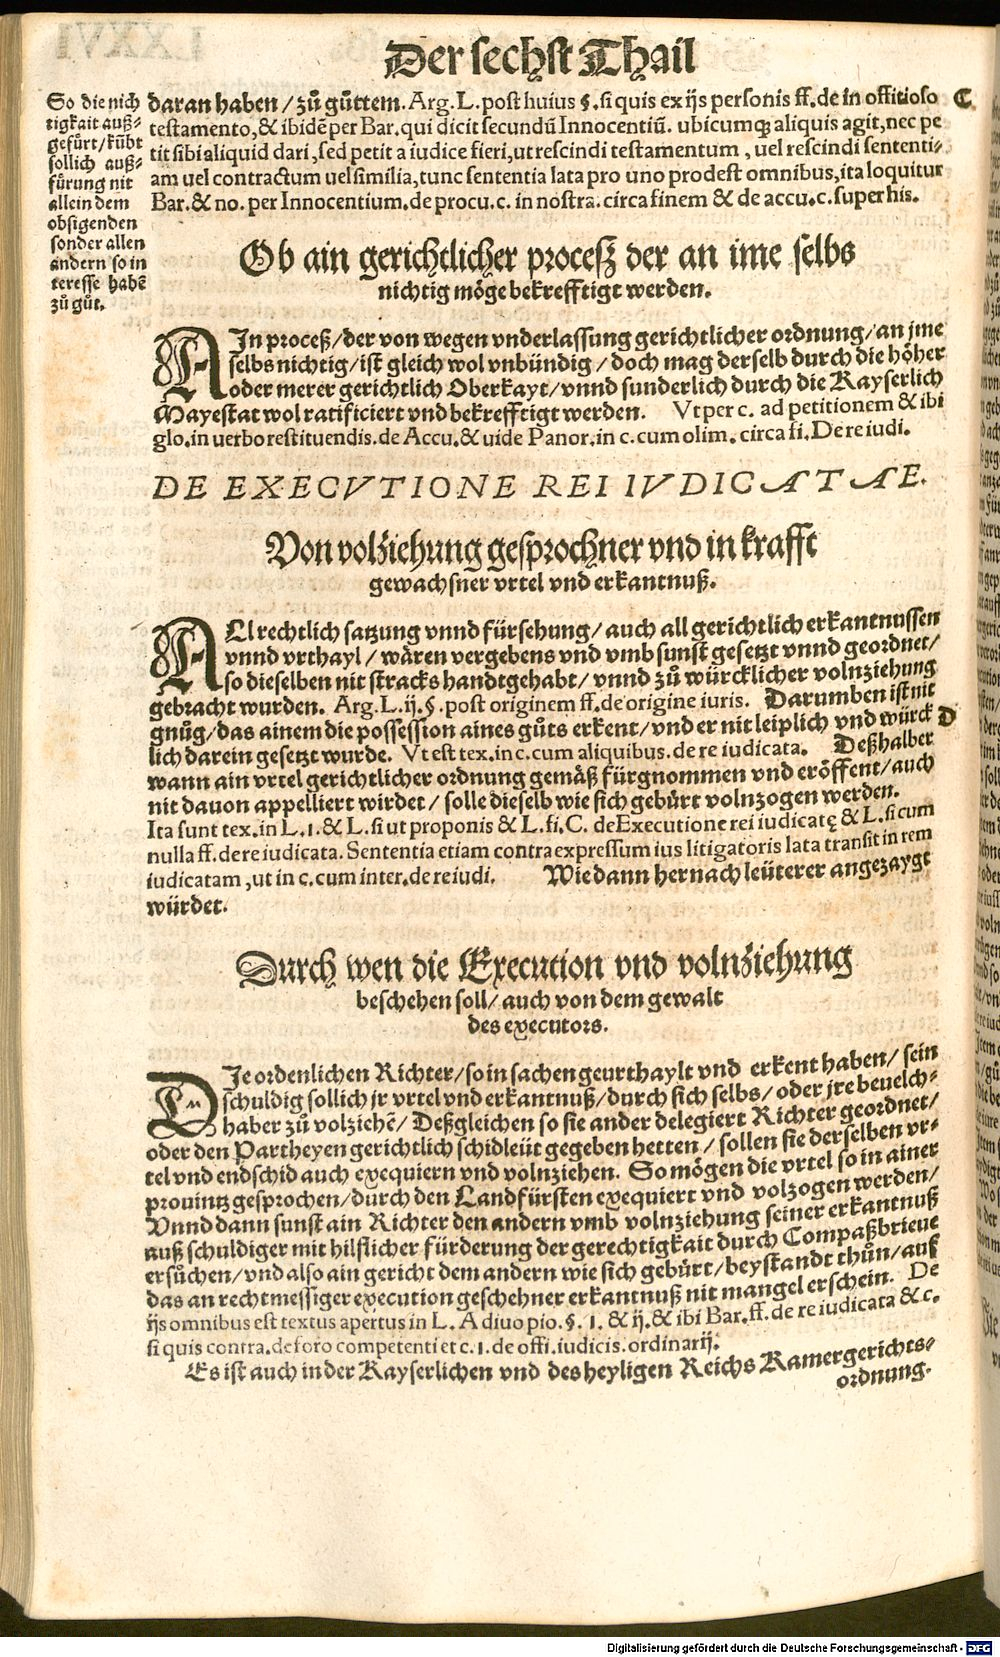 Der sechst Thail
So die nich
tigkait auß-
gefürt/kübt
sollich auß-
fürung nit
allein dem
obsigenden
sonder allen
andern so in
teresse habē
zů gůt.
daran haben / zů gůttem. Arg. L. post huius §. si quis ex ijs personis ff. de in offitioso C
testamento, & ibidē per Bar. qui dicit secundū Innocentiū. ubicumqȝ aliquis agit, nec pe
tit sibi aliquid dari, sed petit a iudice fieri, ut rescindi testamentum, uel rescindi sententi-
am uel contractum uel similia, tunc sententia lata pro uno prodest omnibus, ita loquitur
Bar. & no. per Innocentium. de procu. c. in nostra. circa finem & de accu. c. super his.
Ob ain gerichtlicher proceß der an ime selbs
nichtig möge bekrefftigt werden.
AIn proceß/der von wegen vnderlassung gerichtlicher ordnung/an jme
selbs nichtig/ist gleich wol vnbündig / doch mag derselb durch die höher
oder merer gerichtlich Oberkayt/vnnd sunderlich durch die Kayserlich
Mayestat wol ratificiert vnd bekrefftigt werden. Vt per c. ad petitionem & ibi
glo. in uerbo restituendis. de Accu. & uide Panor. in c. cum olim. circa fi. De re iudi.
DE EXECVTIONE REI IVDICATAE.
Von volziehung gesprochner vnd in krafft
gewachsner vrtel vnd erkantnuß.
ALl rechtlich satzung vnnd fürsehung/ auch all gerichtlich erkantnussen
vnnd vrthayl / wären vergebens vnd vmb sunst gesetzt vnnd geordnet/
so dieselben nit stracks handtgehabt/ vnnd zů würcklicher volnziehung
gebracht wurden. Arg. L. ij. §. post originem ff. de origine iuris. Darumben ist nit
gnůg/das ainem die possession aines gůts erkent/vnd er nit leiplich vnd würck D
lich darein gesetzt wurde. Vt est tex. in c. cum aliquibus. de re iudicata. Deßhalber
wann ain vrtel gerichtlicher ordnung gemäß fürgnommen vnd eröffent/auch
nit dauon appelliert wirdet / solle dieselb wie sich gebürt volnzogen werden.
Ita sunt tex. in L. 1. & L. si ut proponis & L. fi. C. de Executione rei iudicatę & L. si cum
nulla ff. de re iudicata. Sententia etiam contra expressum ius litigatoris lata transit in rem
iudicatam, ut in c. cum inter. de re iudi. Wie dann hernach leüterer angezaygt
würdet.
Durch wen die Execution vnd volnziehung
beschehen soll/ auch von dem gewalt
des executors.
DJe ordenlichen Richter/so in sachen geurthaylt vnd erkent haben/ sein
schuldig sollich jr vrtel vnd erkantnuß/durch sich selbs/ oder jre beuelch-
haber zů volziehē/ Deßgleichen so sie ander delegiert Richter geordnet/
oder den Partheyen gerichtlich schidleüt gegeben hetten / sollen sie derselben vr-
tel vnd endschid auch exequiern vnd volnziehen. So mögen die vrtel so in ainer
prouintz gesprochen/durch den Landfürsten exequiert vnd volzogen werden/
Vnnd dann sunst ain Richter den andern vmb volnziehung seiner erkantnuß
auß schuldiger mit hilflicher fürderung der gerechtigkait durch Compaßbrieue
ersůchen/vnd also ain gericht dem andern wie sich gebürt/beystandt thůn/auf
das an rechtmessiger execution geschehner erkantnuß nit mangel erschein. De
ijs omnibus est textus apertus in L. A diuo pio. §. 1. & ij. & ibi Bar. ff. de re iudicata & c.
si quis contra. de foro competenti et c. 1. de offi. iudicis. ordinarij.
Es ist auch in der Kayserlichen vnd des heyligen Reichs Kamergerichts-
ordnung.
Digitalisierung gefördert durch die Deutsche Forschungsgemeinschaft - DFG